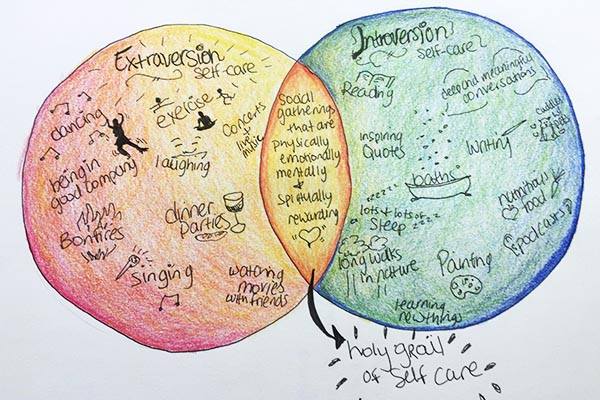 Extraversion
self-care
dancing
exercise
concerts
+
live
music
laughing
being in
good company
Bonfires
dinner
parties
singing
watching
movies
with friends
social
gatherings
that are
physically
emotionally
mentally
+
spiritually
rewarding
Introversion
self-care
Reading
deep and meaningful
conversations
cuddles
inspiring
Quotes
writing
baths
nutritious
food
lots + lots of zzzz
sleep zzzz
podcasts
long walks
in nature
Painting
learning
new things
holy grail
of self care